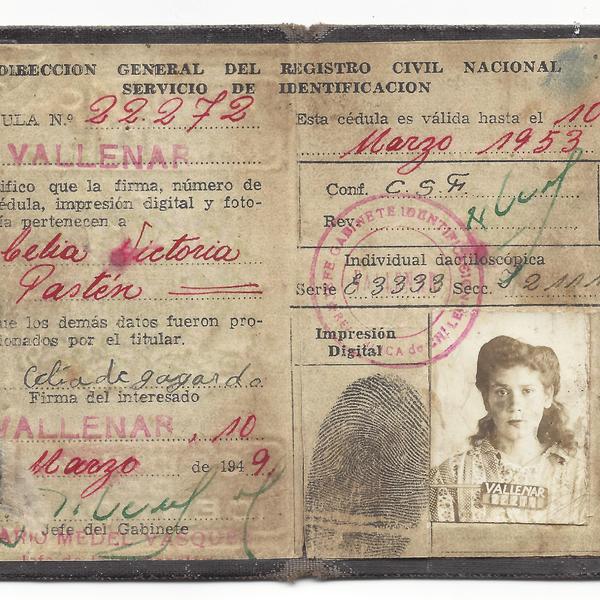 DIRECCION GENERAL DEL REGISTRO CIVIL NACIONAL
SERVICIO DE IDENTIFICACION
ULA N.º 22.272
VALLENAR
ifico que la firma, número de
édula, impresión digital y foto-
ía pertenecen a
Celia Victoria
Pastén
ue los demás datos fueron pro-
ionados por el titular.
Celia de gagardo
Firma del interesado
VALLENAR, 10
Marzo de 1949.
Jefe del Gabinete
ARIO MEDEL VASQUE
Esta cédula es válida hasta el 10
Marzo 1953
Conf. C.S.F.
Rev.
Individual dactiloscópica
Serie E 3333 Secc.
GABINETE IDENTIFICACION
Impresión
Digital
VALLENAR